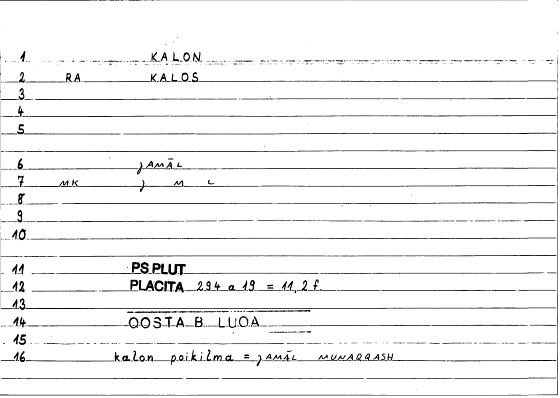 1 KALON
2 RA KALOS
3
4
5
6 ǧAMĀL
7 MK ǧ M L
8
9
10
11 PS.PLUT
12 PLACITA 294 a 19 = 11,2 f.
13
14 QOSTA B. LUQA
15
16 kalon poikilma = ǧAMĀL MUNAQQASH